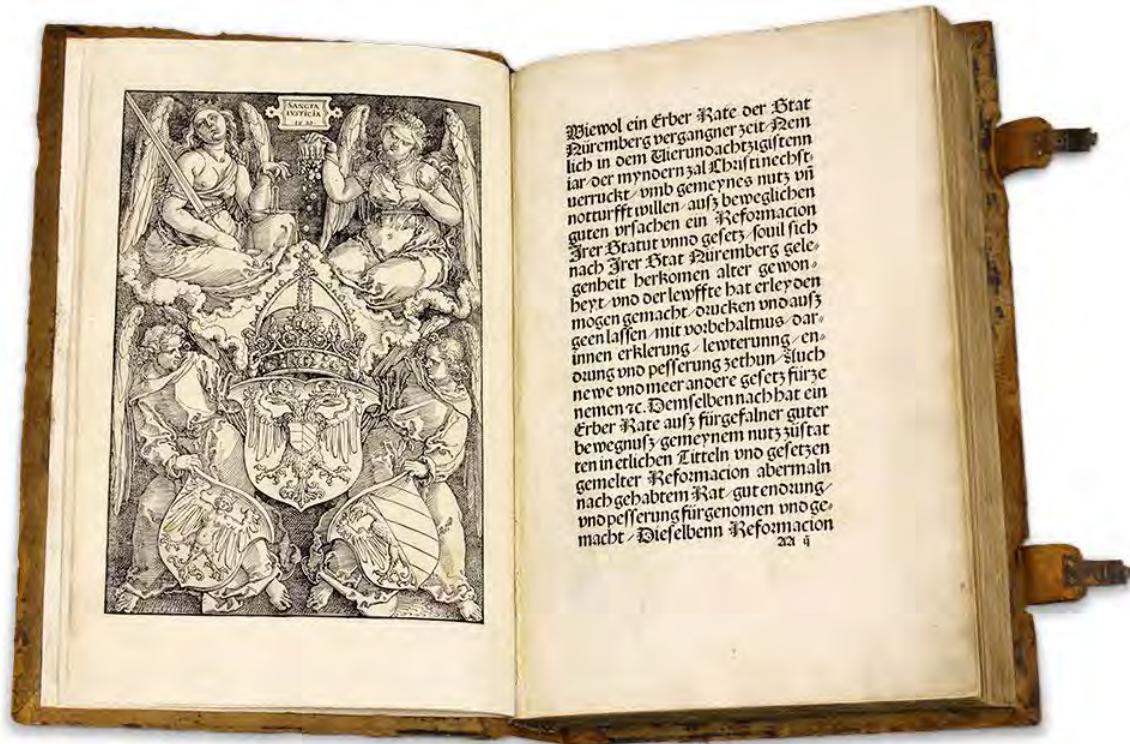 SANCTA
IVSTICIA
1521
Wiewol ein Erber Rate der Stat
Nüremberg vergangner zeit / Nem
lich in dem Vierundachtzigistenn
iar / der myndern zal Christi nechst-
uerruckt / vmb gemeynes nutz vñ
notturfft willen / ausz beweglichen
guten vrsachen ein Reformacion
Jrer Statut vnnd gesetz / souil sich
nach Jrer Stat Nüremberg gele-
genheit herkomen alter gewon-
heyt / vnd der lewffte hat erleyden
mogen gemacht / drucken vnd ausz
geen lassen / mit vorbehaltnus / dar-
innen erklerung / lewterunng / en-
drung vnd pesserung zethun / Auch
newe vnd meer andere gesetz fürze
nemen ꝛc. Demselben nach hat ein
Erber Rate ausz fürgefalner guter
bewegnusz / gemeynem nutz zůstat
ten in etlichen Titteln vnd gesetzen
gemelter Reformacion abermaln
nach gehabtem Rat / gut endrung /
vnd pesserung fürgenomen vnd ge-
macht / Dieselbenn Reformacion
AA ij